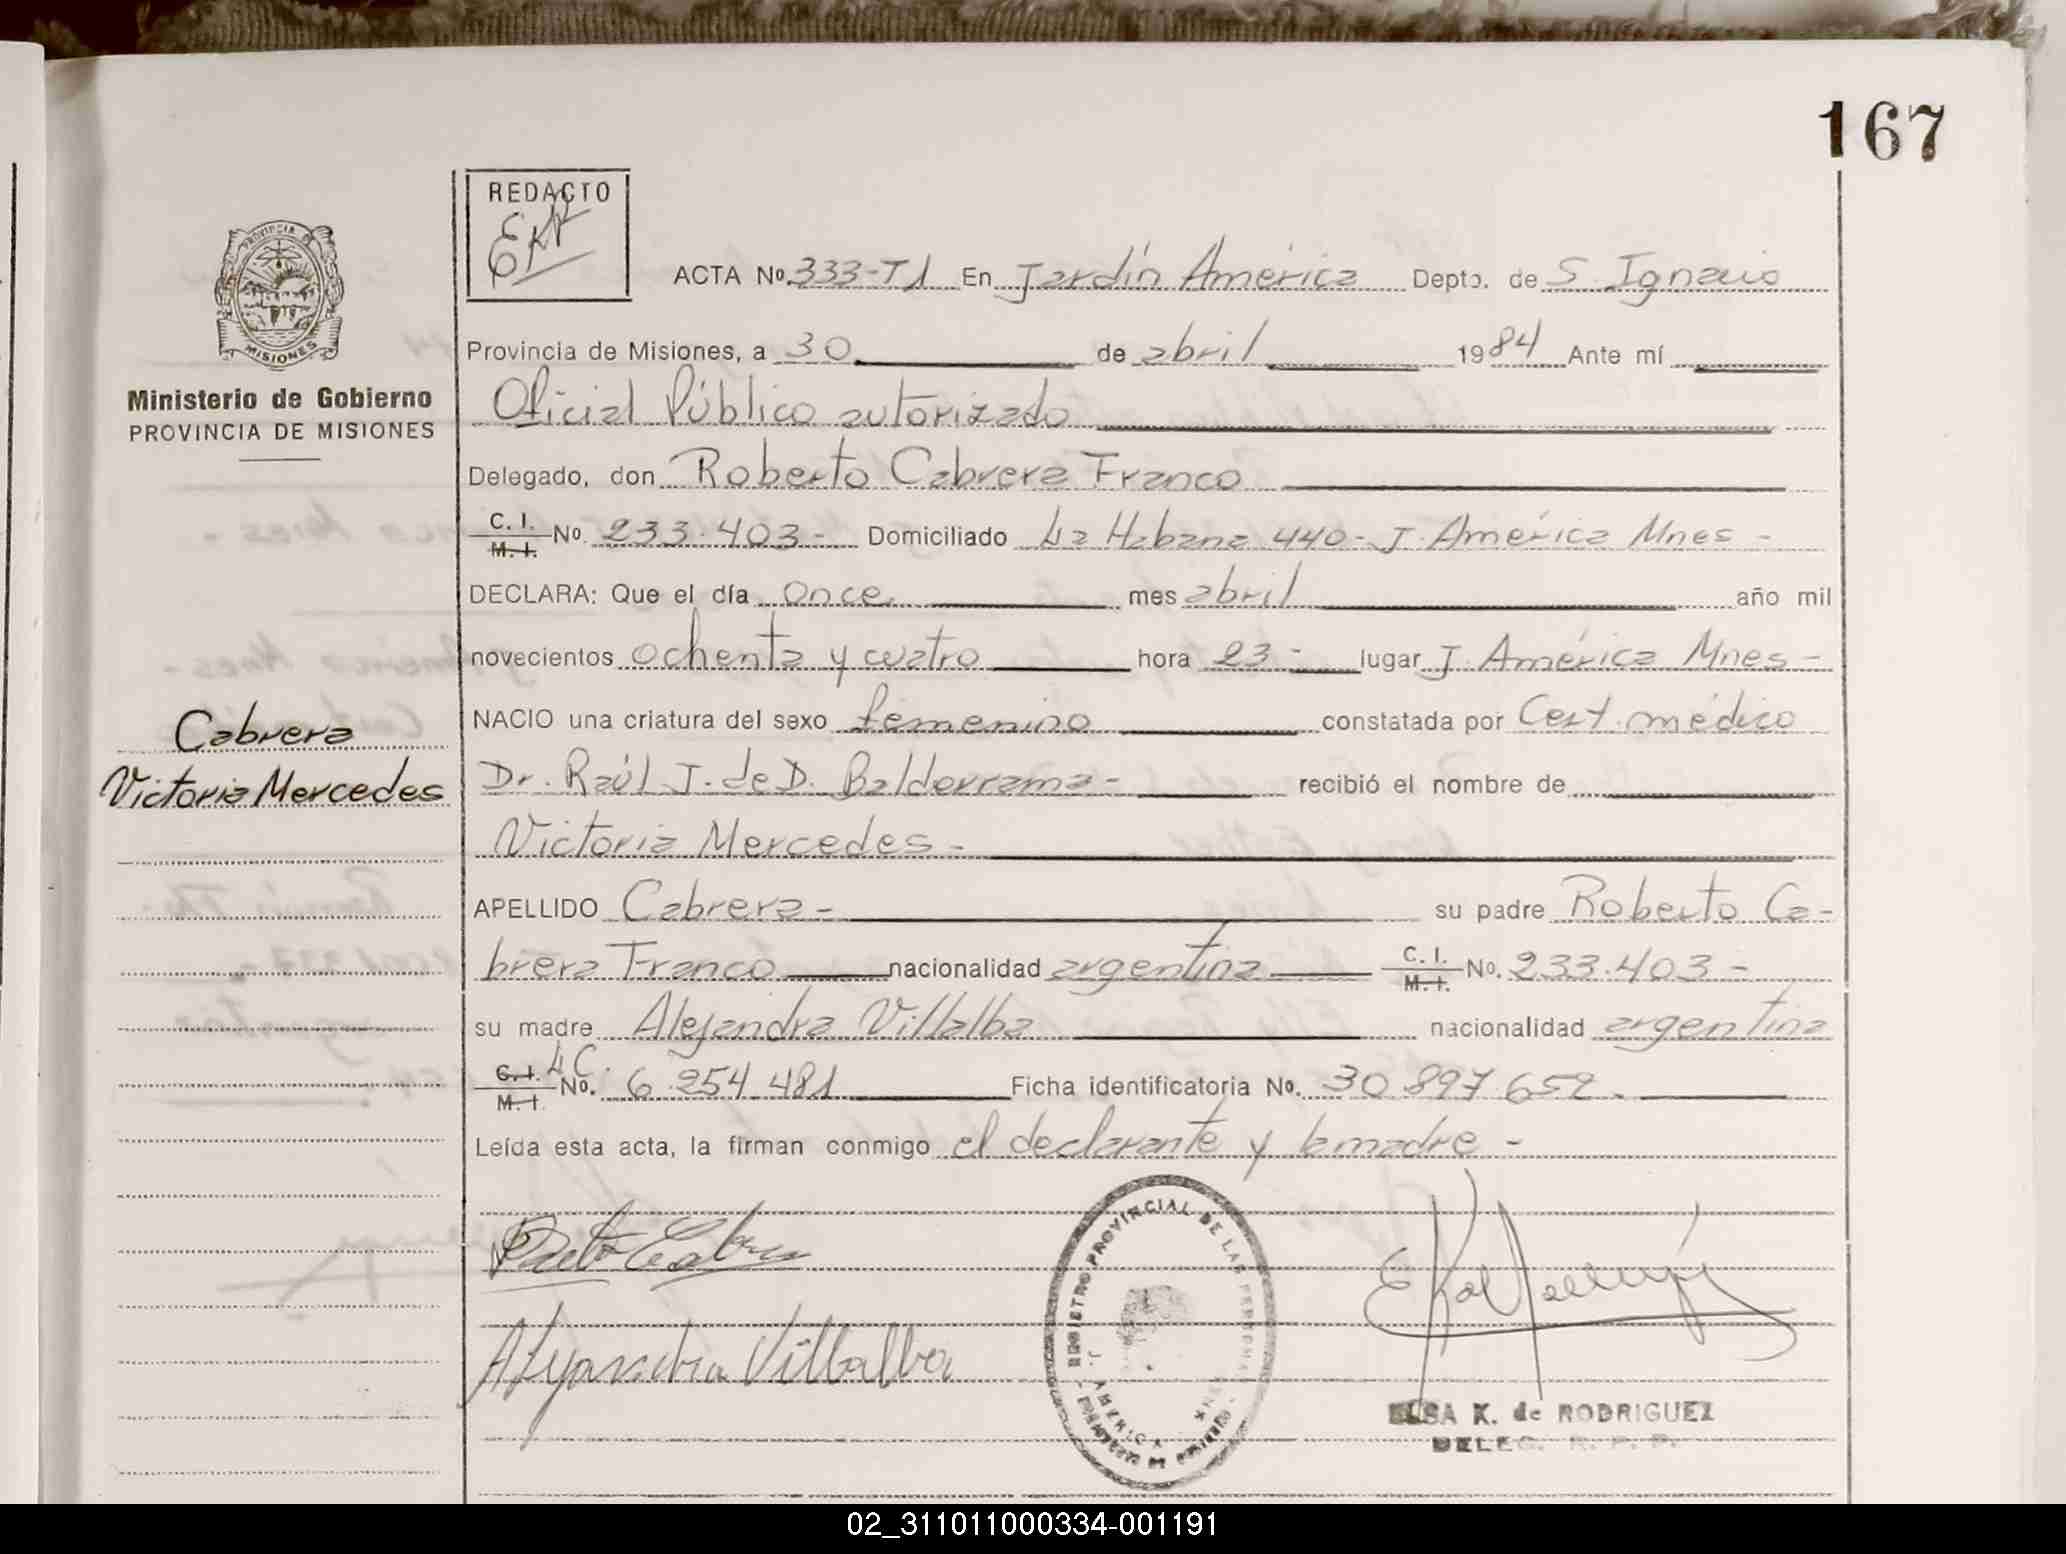 167
REDACTO
EKR
PROVINCIA DE
MISIONES
Ministerio de Gobierno
PROVINCIA DE MISIONES
ACTA No. 333-T1 En Jardín América Depto. de S. Ignacio
Provincia de Misiones, a 30 de abril 1984 Ante mí
Oficial Público autorizado
Delegado, don Roberto Cabrera Franco
C. I. M. I. No. 233.403- Domiciliado La Habana 440- J. América Mnes -
DECLARA: Que el día once mes abril año mil
novecientos ochenta y cuatro hora 23- lugar J. América Mnes -
Cabrera
Victoria Mercedes
NACIO una criatura del sexo femenino constatada por Cert. médico
Dr. Raúl J. de D. Balderrama - recibió el nombre de
Victoria Mercedes -
APELLIDO Cabrera - su padre Roberto Ca-
brera Franco nacionalidad argentina C. I. M. I. No. 233.403 -
su madre Alejandra Villalba nacionalidad argentina
C. I. M. I. L C. No. 6.254.481 Ficha identificatoria No. 30.897.652.
Leída esta acta, la firman conmigo el declarante y la madre -
Alejandra Villalba
REGISTRO PROVINCIAL DE LAS PERSONAS
J. AMERICA
ELSA K. de RODRIGUEZ
DELEG. R. P. P.
02_311011000334-001191